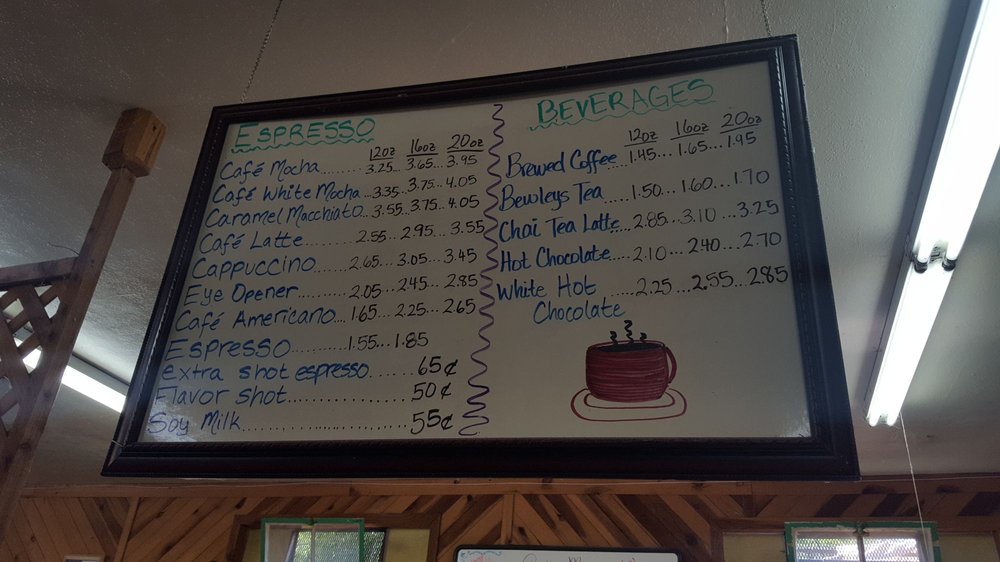 ESPRESSO
12oz 16oz 20oz
Café Mocha ........ 3.25... 3.65... 3.95
Café White Mocha ... 3.35... 3.75... 4.05
Caramel Macchiato .. 3.55... 3.75... 4.05
Café Latte ......... 2.55... 2.95... 3.55
Cappuccino ....... 2.65... 3.05... 3.45
Eye Opener ......... 2.05... 2.45... 2.85
Café Americano .... 1.65... 2.25... 2.65
Espresso ......... 1.55... 1.85
extra shot espresso ...... 65¢
Flavor shot .................. 50¢
Soy Milk .................... 55¢
BEVERAGES
12oz 16oz 20oz
Brewed Coffee ... 1.45... 1.65... 1.95
Bewleys Tea ..... 1.50... 1.60... 1.70
Chai Tea Latte ... 2.85... 3.10... 3.25
Hot Chocolate .... 2.10... 2.40... 2.70
White Hot ..... 2.25... 2.55... 2.85
Chocolate